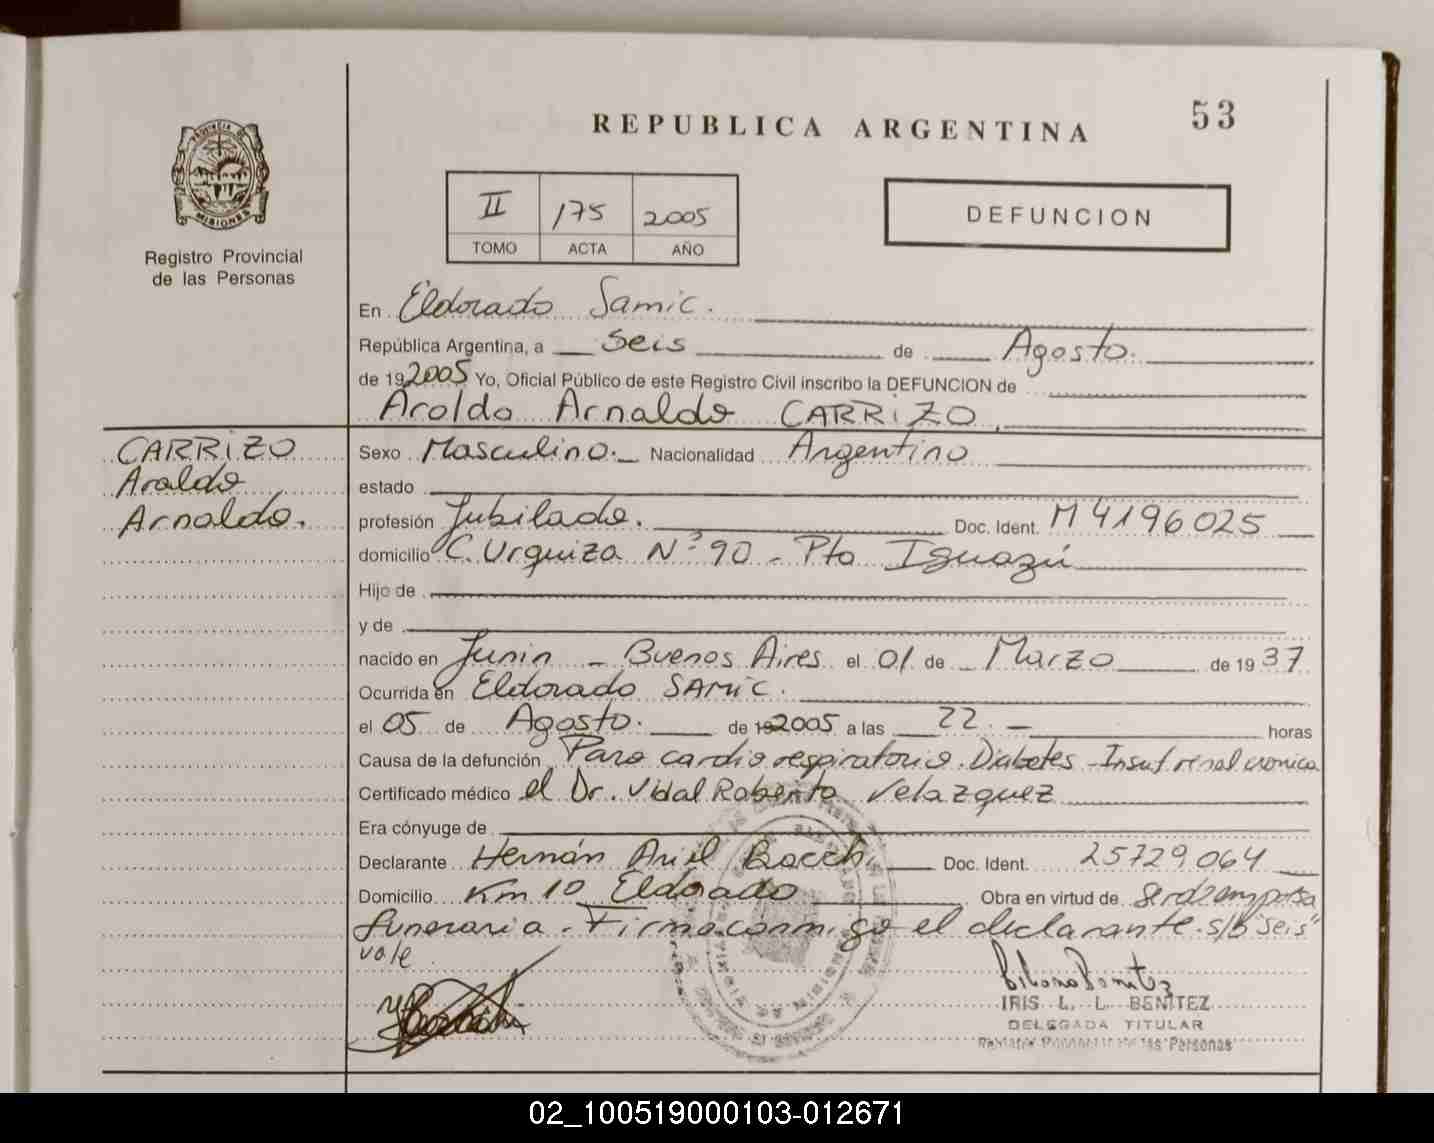 53
REPUBLICA ARGENTINA
PROVINCIA DE
MISIONES
Registro Provincial
de las Personas
II 175 2005
TOMO ACTA AÑO
DEFUNCION
En Eldorado Samic.
República Argentina, a Seis de Agosto.
de 19 2005 Yo, Oficial Público de este Registro Civil inscribo la DEFUNCION de
Aroldo Arnaldo CARRIZO
CARRIZO
Araldo
Arnaldo.
Sexo Masculino. Nacionalidad Argentino
estado
profesión Jubilado. Doc. Ident. M 4196025
domicilio C. Urquiza Nº 90 - Pto Iguazú
Hijo de
y de
nacido en Junin - Buenos Aires el 01 de Marzo de 19 37
Ocurrida en Eldorado SAMIC.
el 05 de Agosto. de 19 2005 a las 22 horas
Causa de la defunción Paro cardio respiratorio. Diabetes - Insuf renal cronica
Certificado médico el Dr. Vidal Roberto Velazquez
Era cónyuge de
Declarante Hernán Ariel Doc. Ident. 25729.064
Domicilio Km 10 Eldorado Obra en virtud de
funeraria. Firma conmigo el declarante. s/b "seis"
vale
IRIS L. L. BENITEZ
DELEGADA TITULAR
Registro Provincial de las Personas
02_100519000103-012671